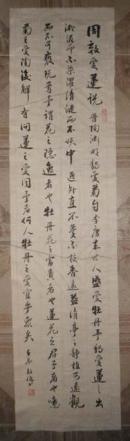 周敦愛蓮說 晉陶淵明獨愛菊自李唐來世人盛愛牡丹予獨愛蓮之出
淤泥而不染濯清漣而不妖中通外直不蔓不枝香遠益清亭亭靜植可遠觀
而不可褻玩焉予謂菊花之隱逸者也牡丹花之富貴者也蓮花之君子者也噫
菊之愛陶後鮮有聞蓮之愛同予者何人牡丹之愛宜乎眾矣